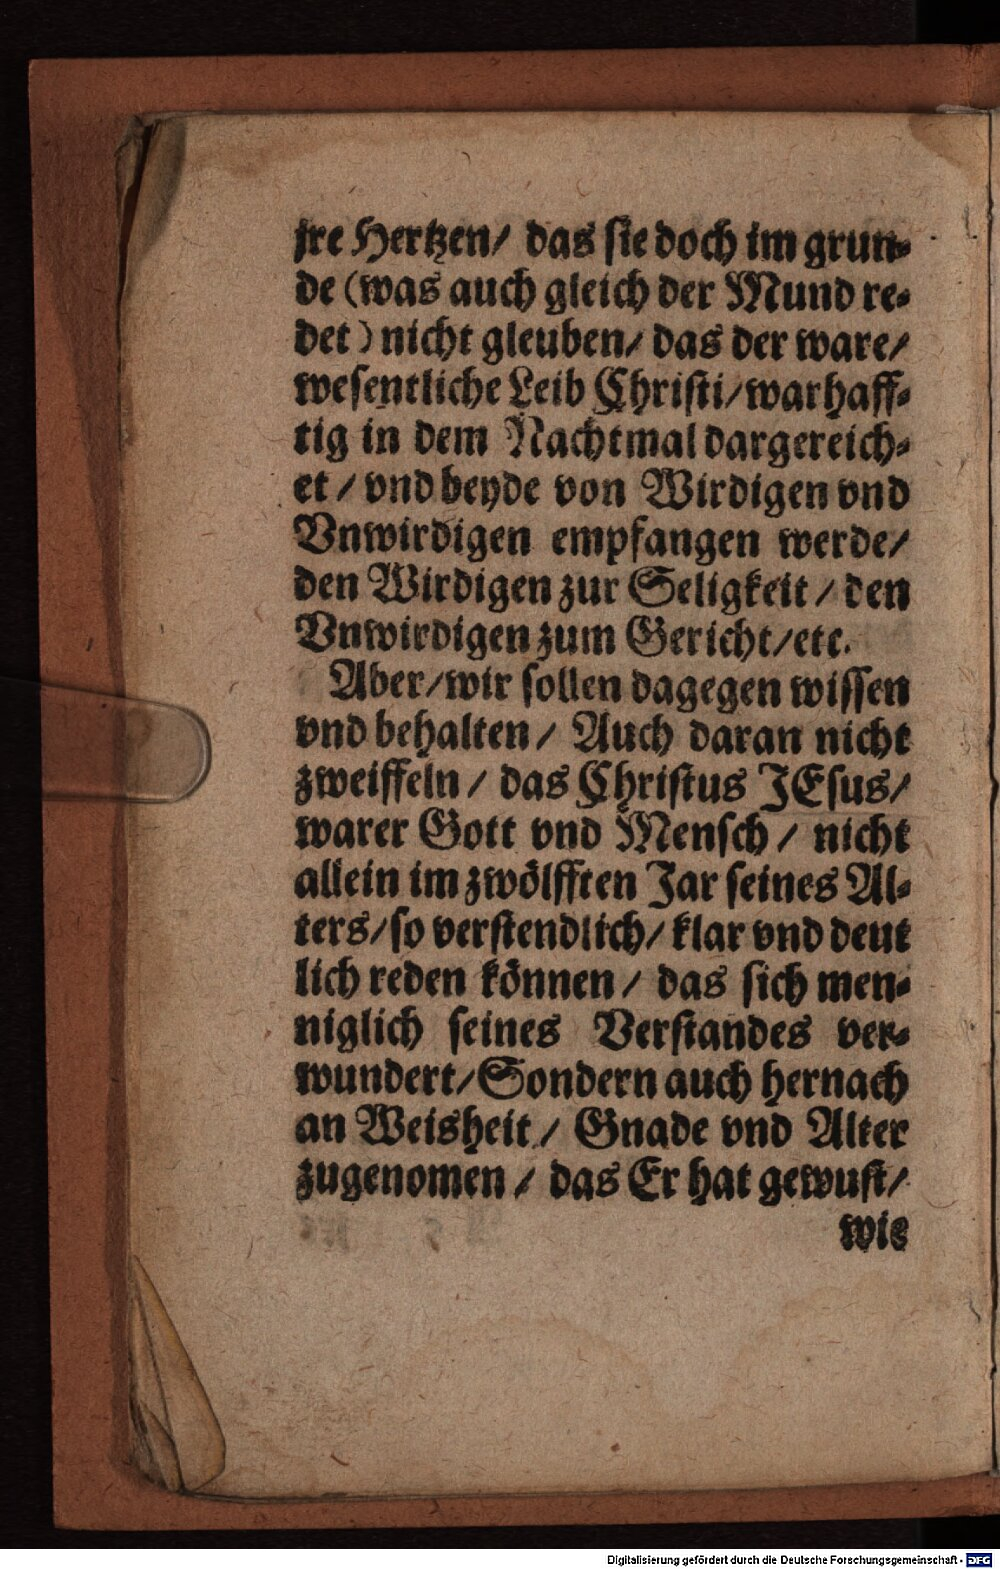 jre Hertzen/ das sie doch im grun-
de (was auch gleich der Mund re-
det) nicht gleuben/ das der ware/
wesentliche Leib Christi/ warhaff-
tig in dem Nachtmal dargereich-
et/ vnd beyde von Wirdigen vnd
Vnwirdigen empfangen werde/
den Wirdigen zur Seligkeit/ den
Vnwirdigen zum Gericht/etc.
Aber/wir sollen dagegen wissen
vnd behalten/ Auch daran nicht
zweiffeln/ das Christus JEsus/
warer Gott vnd Mensch/ nicht
allein im zwölfften Jar seines Al-
ters/so verstendlich/ klar vnd deut
lich reden können/ das sich men-
niglich seines Verstandes ver-
wundert/Sondern auch hernach
an Weisheit/ Gnade vnd Alter
zugenomen/ das Er hat gewust/
wie
Digitalisierung gefördert durch die Deutsche Forschungsgemeinschaft - DFG